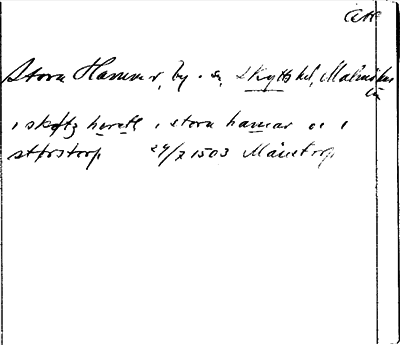 Stora Hammar, by o. sn, Skytts hd, Malmöhus
län
i skøtz hereth i stora hamar oc i
størstorp 24/7 1503 Månstorp